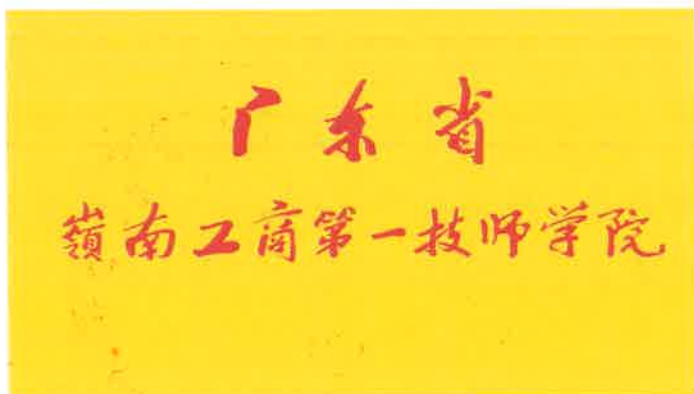 广东省
嶺南工商第一技师学院